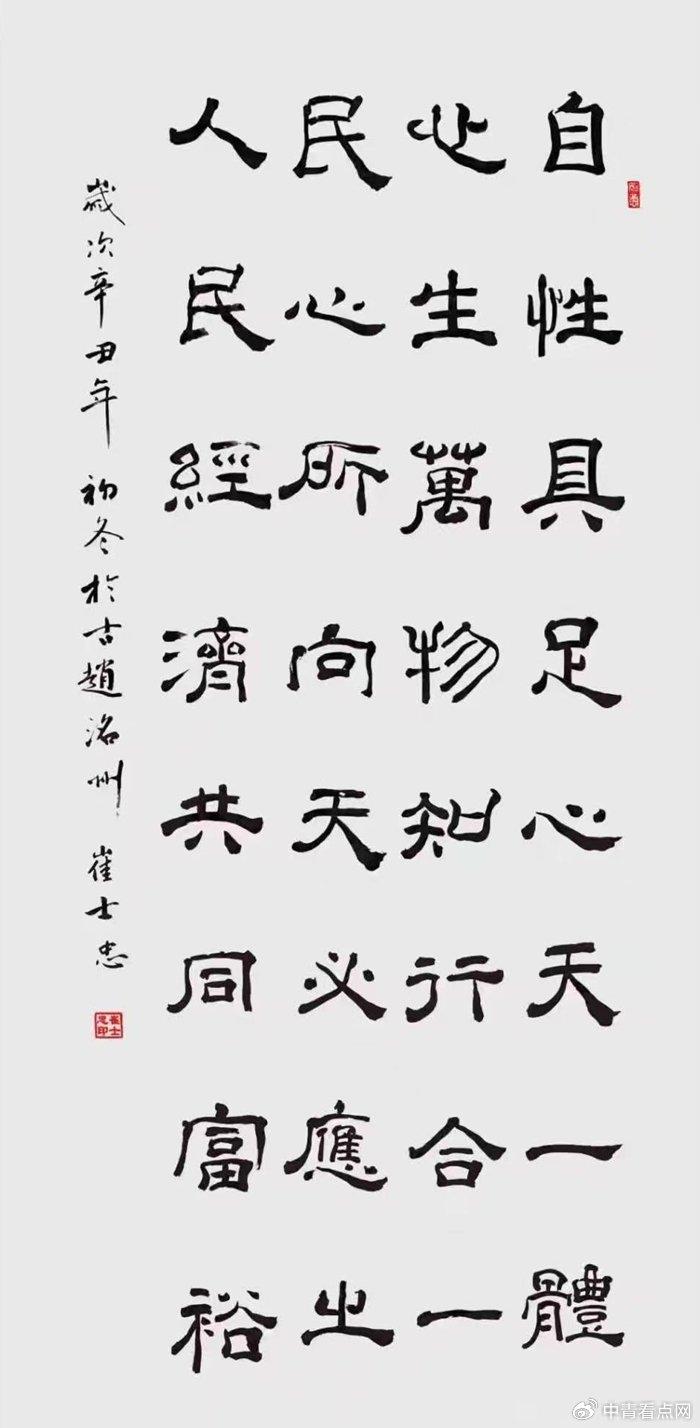 自性具足心天一體
化生萬物知行合一
民心所向天必應之
人民經濟共同富裕
歲次辛丑年 初冬於古趙洺州 崔士忠
崔士忠印
中青看点网